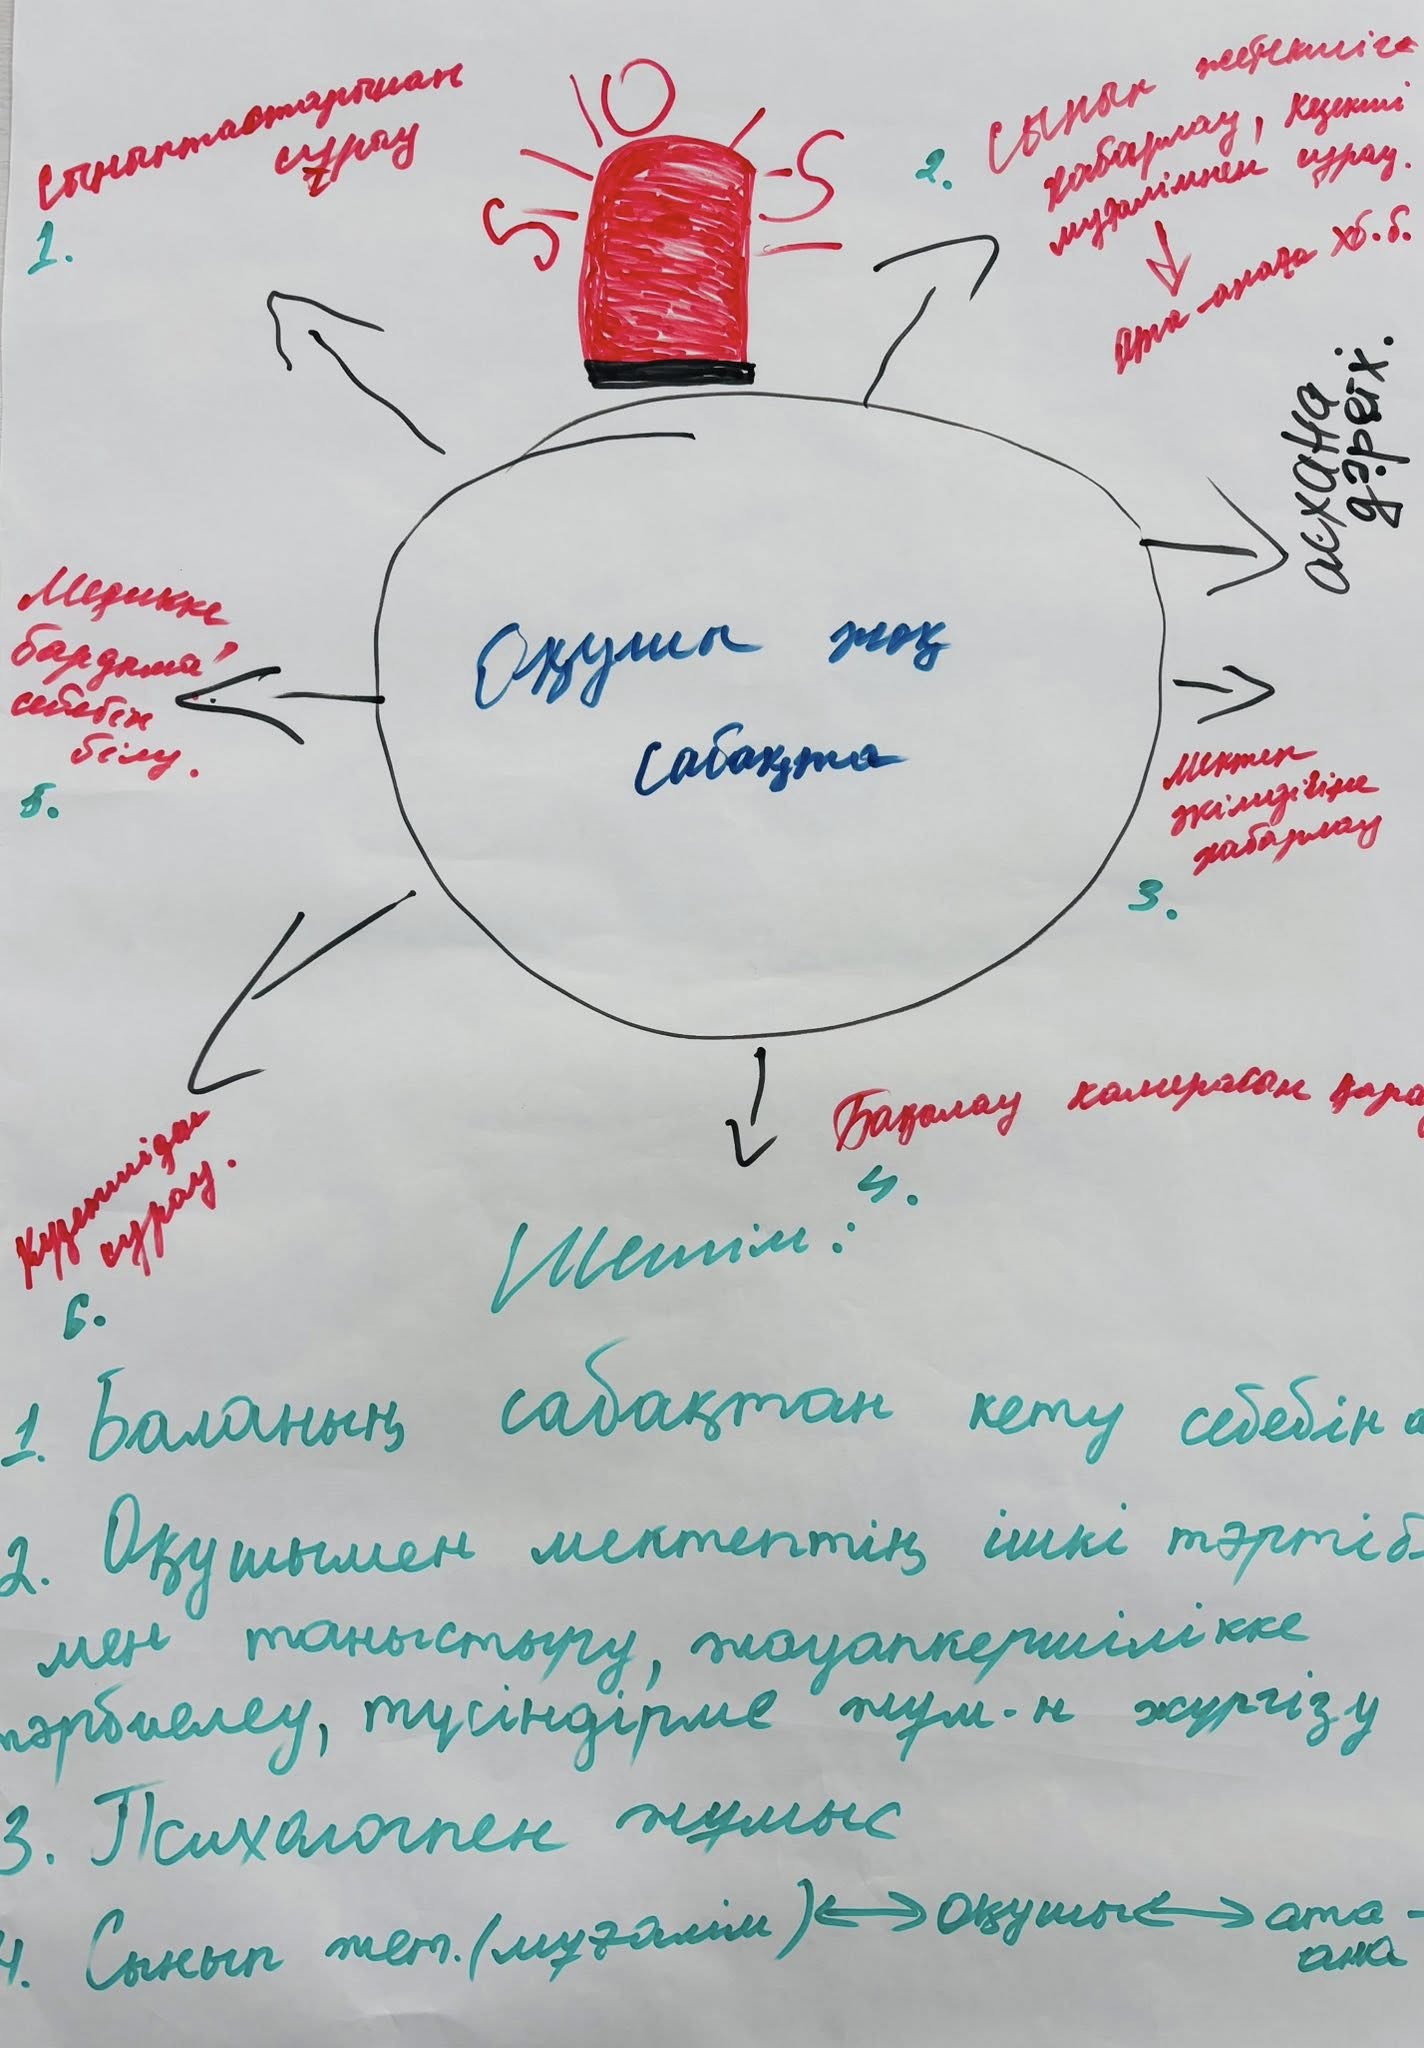 SOS
Сыныптастарынан
сұрау
1.
2. Сынып жетекшіге
хабарлау, кезекші
мұғалімнен сұрау.
Ата-анаға хб.б.
асхана
дәретх.
Оқушы жоқ
сабақта
Медикке
барды ма?
себебін
білу.
5.
Мектеп
әкімдігіне
хабарлау
3.
Бақылау камерасын қарау
4.
Күзетшіден
сұрау.
6.
Шешім:
1. Баланың сабақтан кету себебін
2. Оқушымен мектептің ішкі тәртіб
мен таныстыру, жауапкершілікке
тәрбиелеу, түсіндірме жұм-н жүргізу
3. Психологпен жұмыс
4. Сынып жет. (мұғалім) ↔ оқушы ↔ ата-
ана